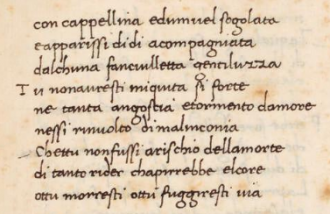 con cappellina edunuel sogolata
e apparissi di di acompagnata
dalchuna fanciulletta gentiluzza
Tu nonauresti miquita si forte
ne tanta angostia e tormento damore
nessi rinuolto di malinconia
Chettu nonfussi arischio dellamorte
di tanto rider chapirrebbe elcore
ottu morresti ottu fuggiresti uia